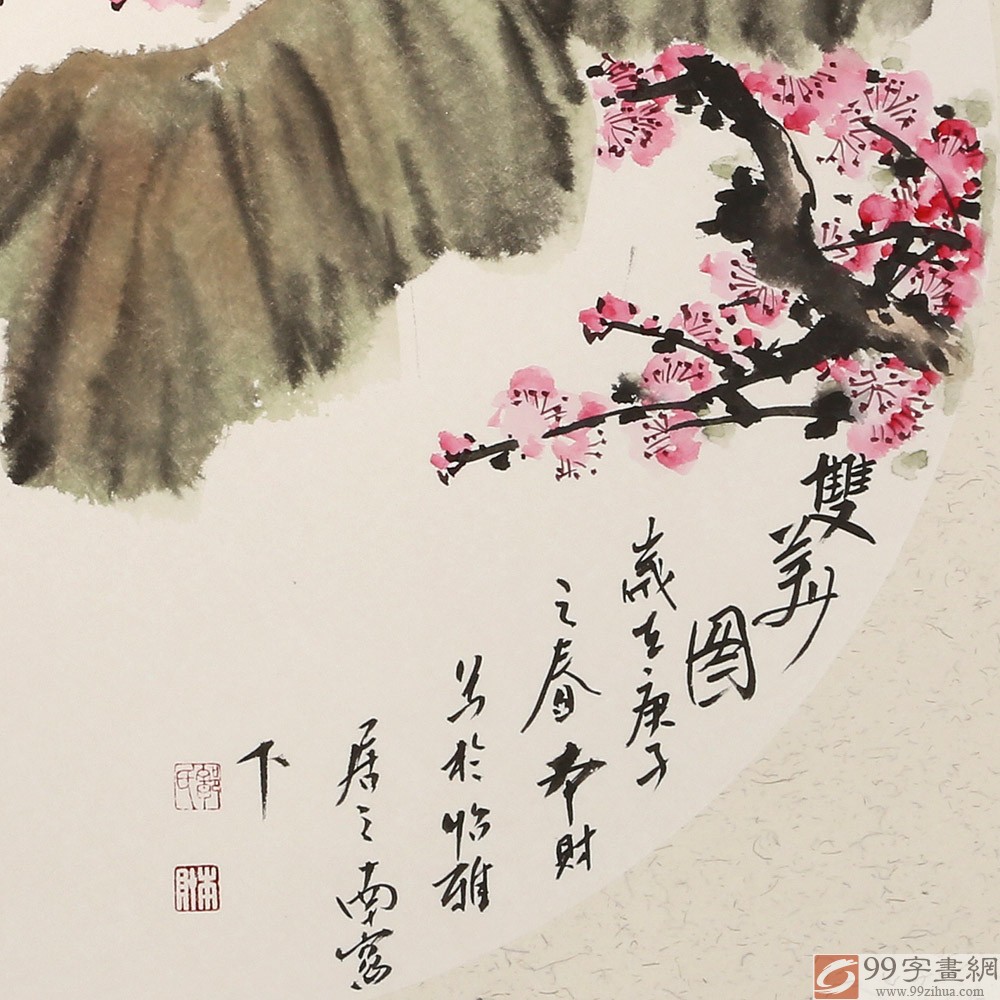 雙美圖
歲在庚子
之春本財
写於怡雅
居之南窗
下
鄭氏
本財
99字畫網
www.99zihua.com